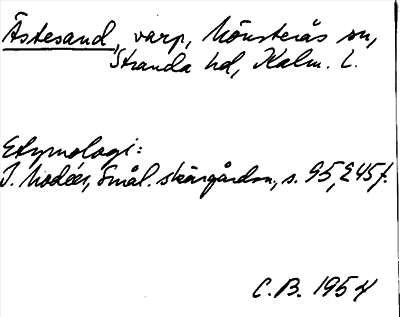 Ästesand, varp, Mönsterås sn,
Stranda hd, Kalm. L.
Etymologi:
I. Modéer, Smål. skärgårdsn., s. 95, 245 f.
C. B. 1954